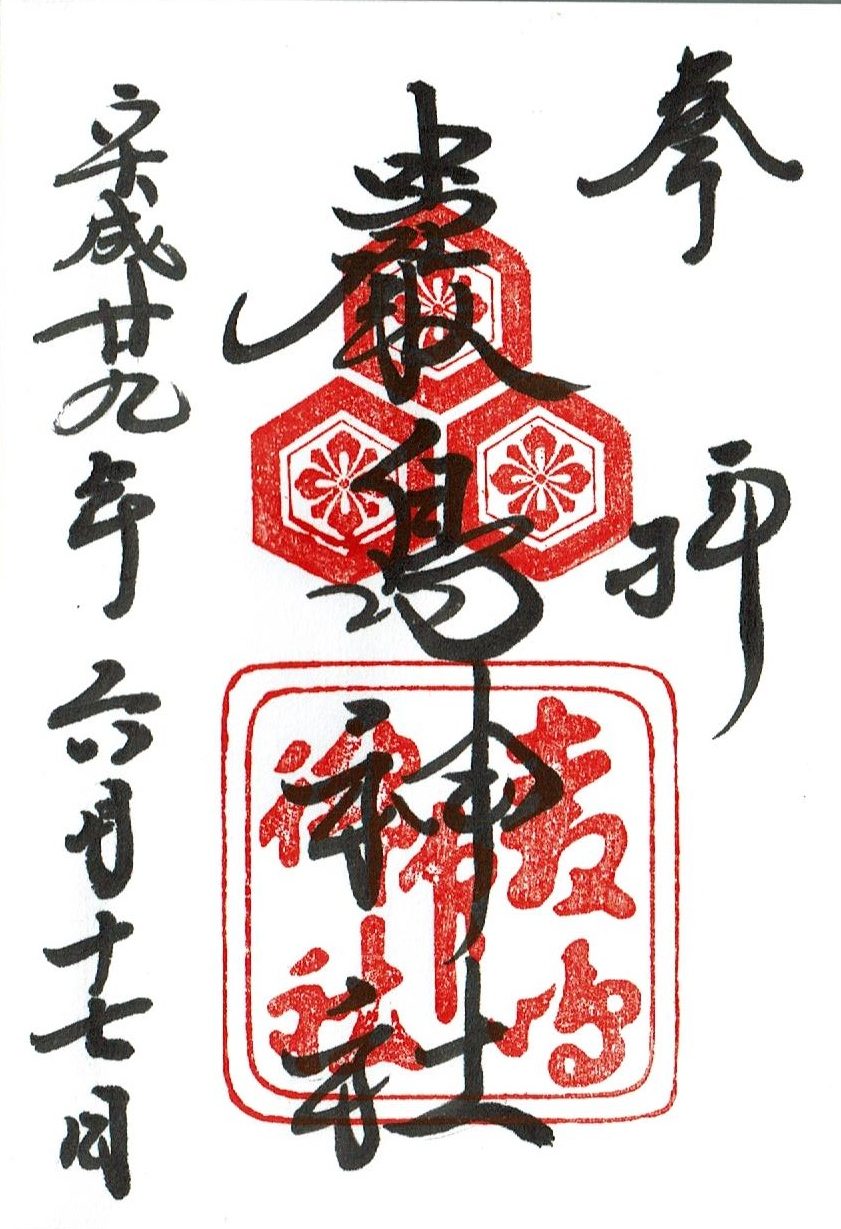 奉拝
嚴島神社
平成廿九年六月十七日